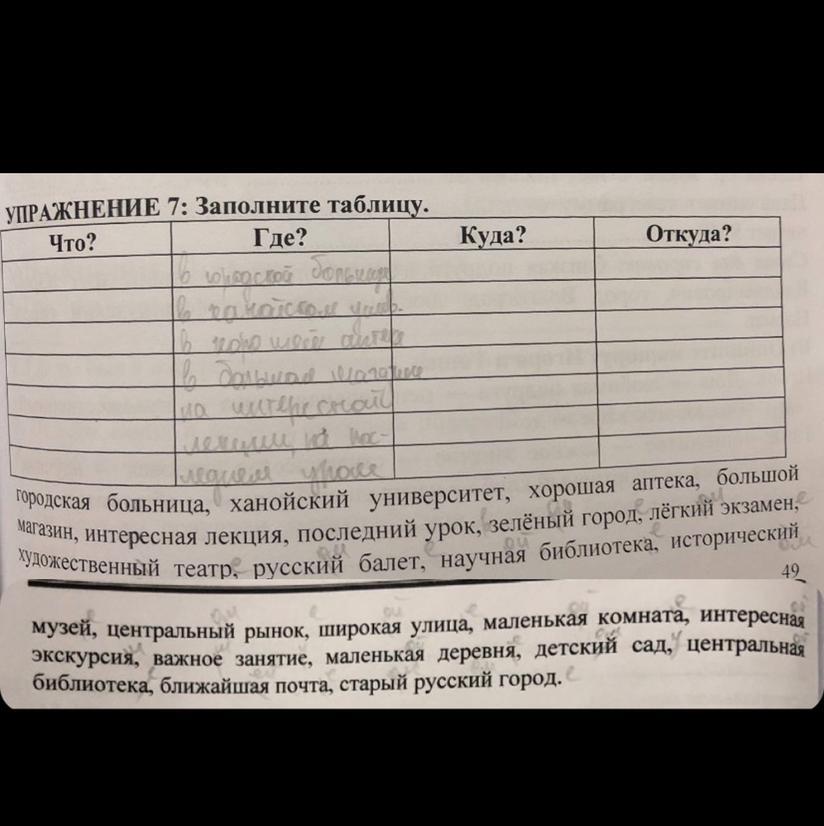 УПРАЖНЕНИЕ 7: Заполните таблицу.
Что? Где? Куда? Откуда?
в городской больнице
в ханойском унив.
в хорошей аптеке
в большая магазине
на интересной
лекции, на пос-
леднем уроке
городская больница, ханойский университет, хорошая аптека, большой
магазин, интересная лекция, последний урок, зелёный город, лёгкий экзамен,
художественный театр, русский балет, научная библиотека, исторический
49
музей, центральный рынок, широкая улица, маленькая комната, интересная
экскурсия, важное занятие, маленькая деревня, детский сад, центральная
библиотека, ближайшая почта, старый русский город.